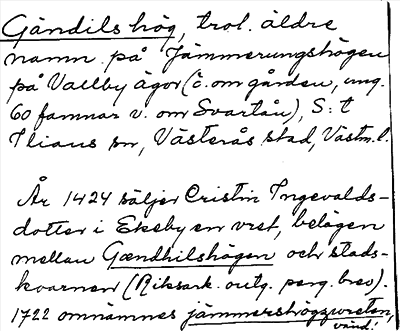 Gändils hög, trol. äldre
namn på Jämmerungshögen
på Vallby ägor (ö. om gården, ung.
60 famnar v. om Svartån), S:t
Ilians sn, Västerås stad, Västm. l.
År 1424 säljer Cristin Ingevalds-
dotter i Ekeby en vret, belägen
mellan Gændhilshögen och stads-
kvarnen (Riksark. outg. perg. brev).
1722 omnämnes jämmershögzvreten,
vänd!